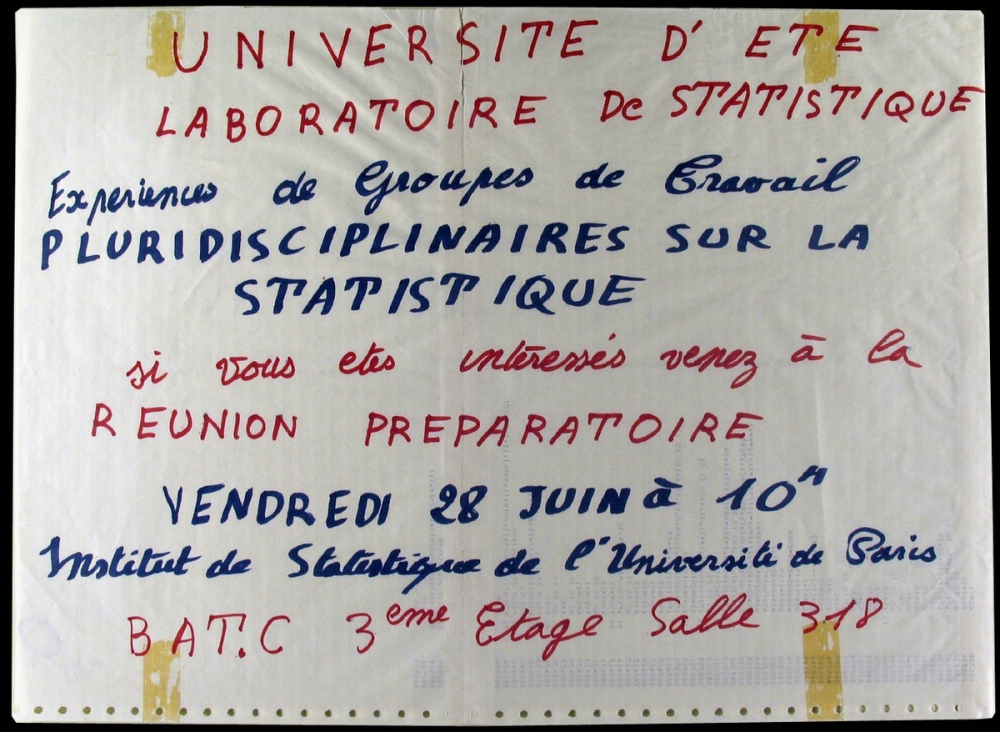 UNIVERSITE D' ETE
LABORATOIRE De STATISTIQUE
Experiences de Groupes de Travail
PLURIDISCIPLINAIRES SUR LA
STATISTIQUE
si vous etes intéressés venez à la
REUNION PREPARATOIRE
VENDREDI 28 JUIN à 10H
Institut de Statistique de l'Université de Paris
BAT.C 3eme Etage Salle 318